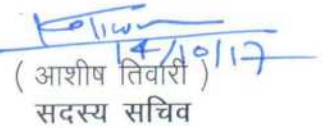 14/10/17
( आशीष तिवारी )
सदस्य सचिव